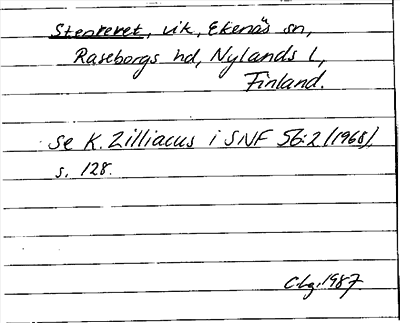 Stenkeret, vik, Ekenäs sn,
Raseborgs hd, Nylands l,
Finland.
se K. Zilliacus i SNF 56:2 (1968),
s. 128.
Cbg. 1987.